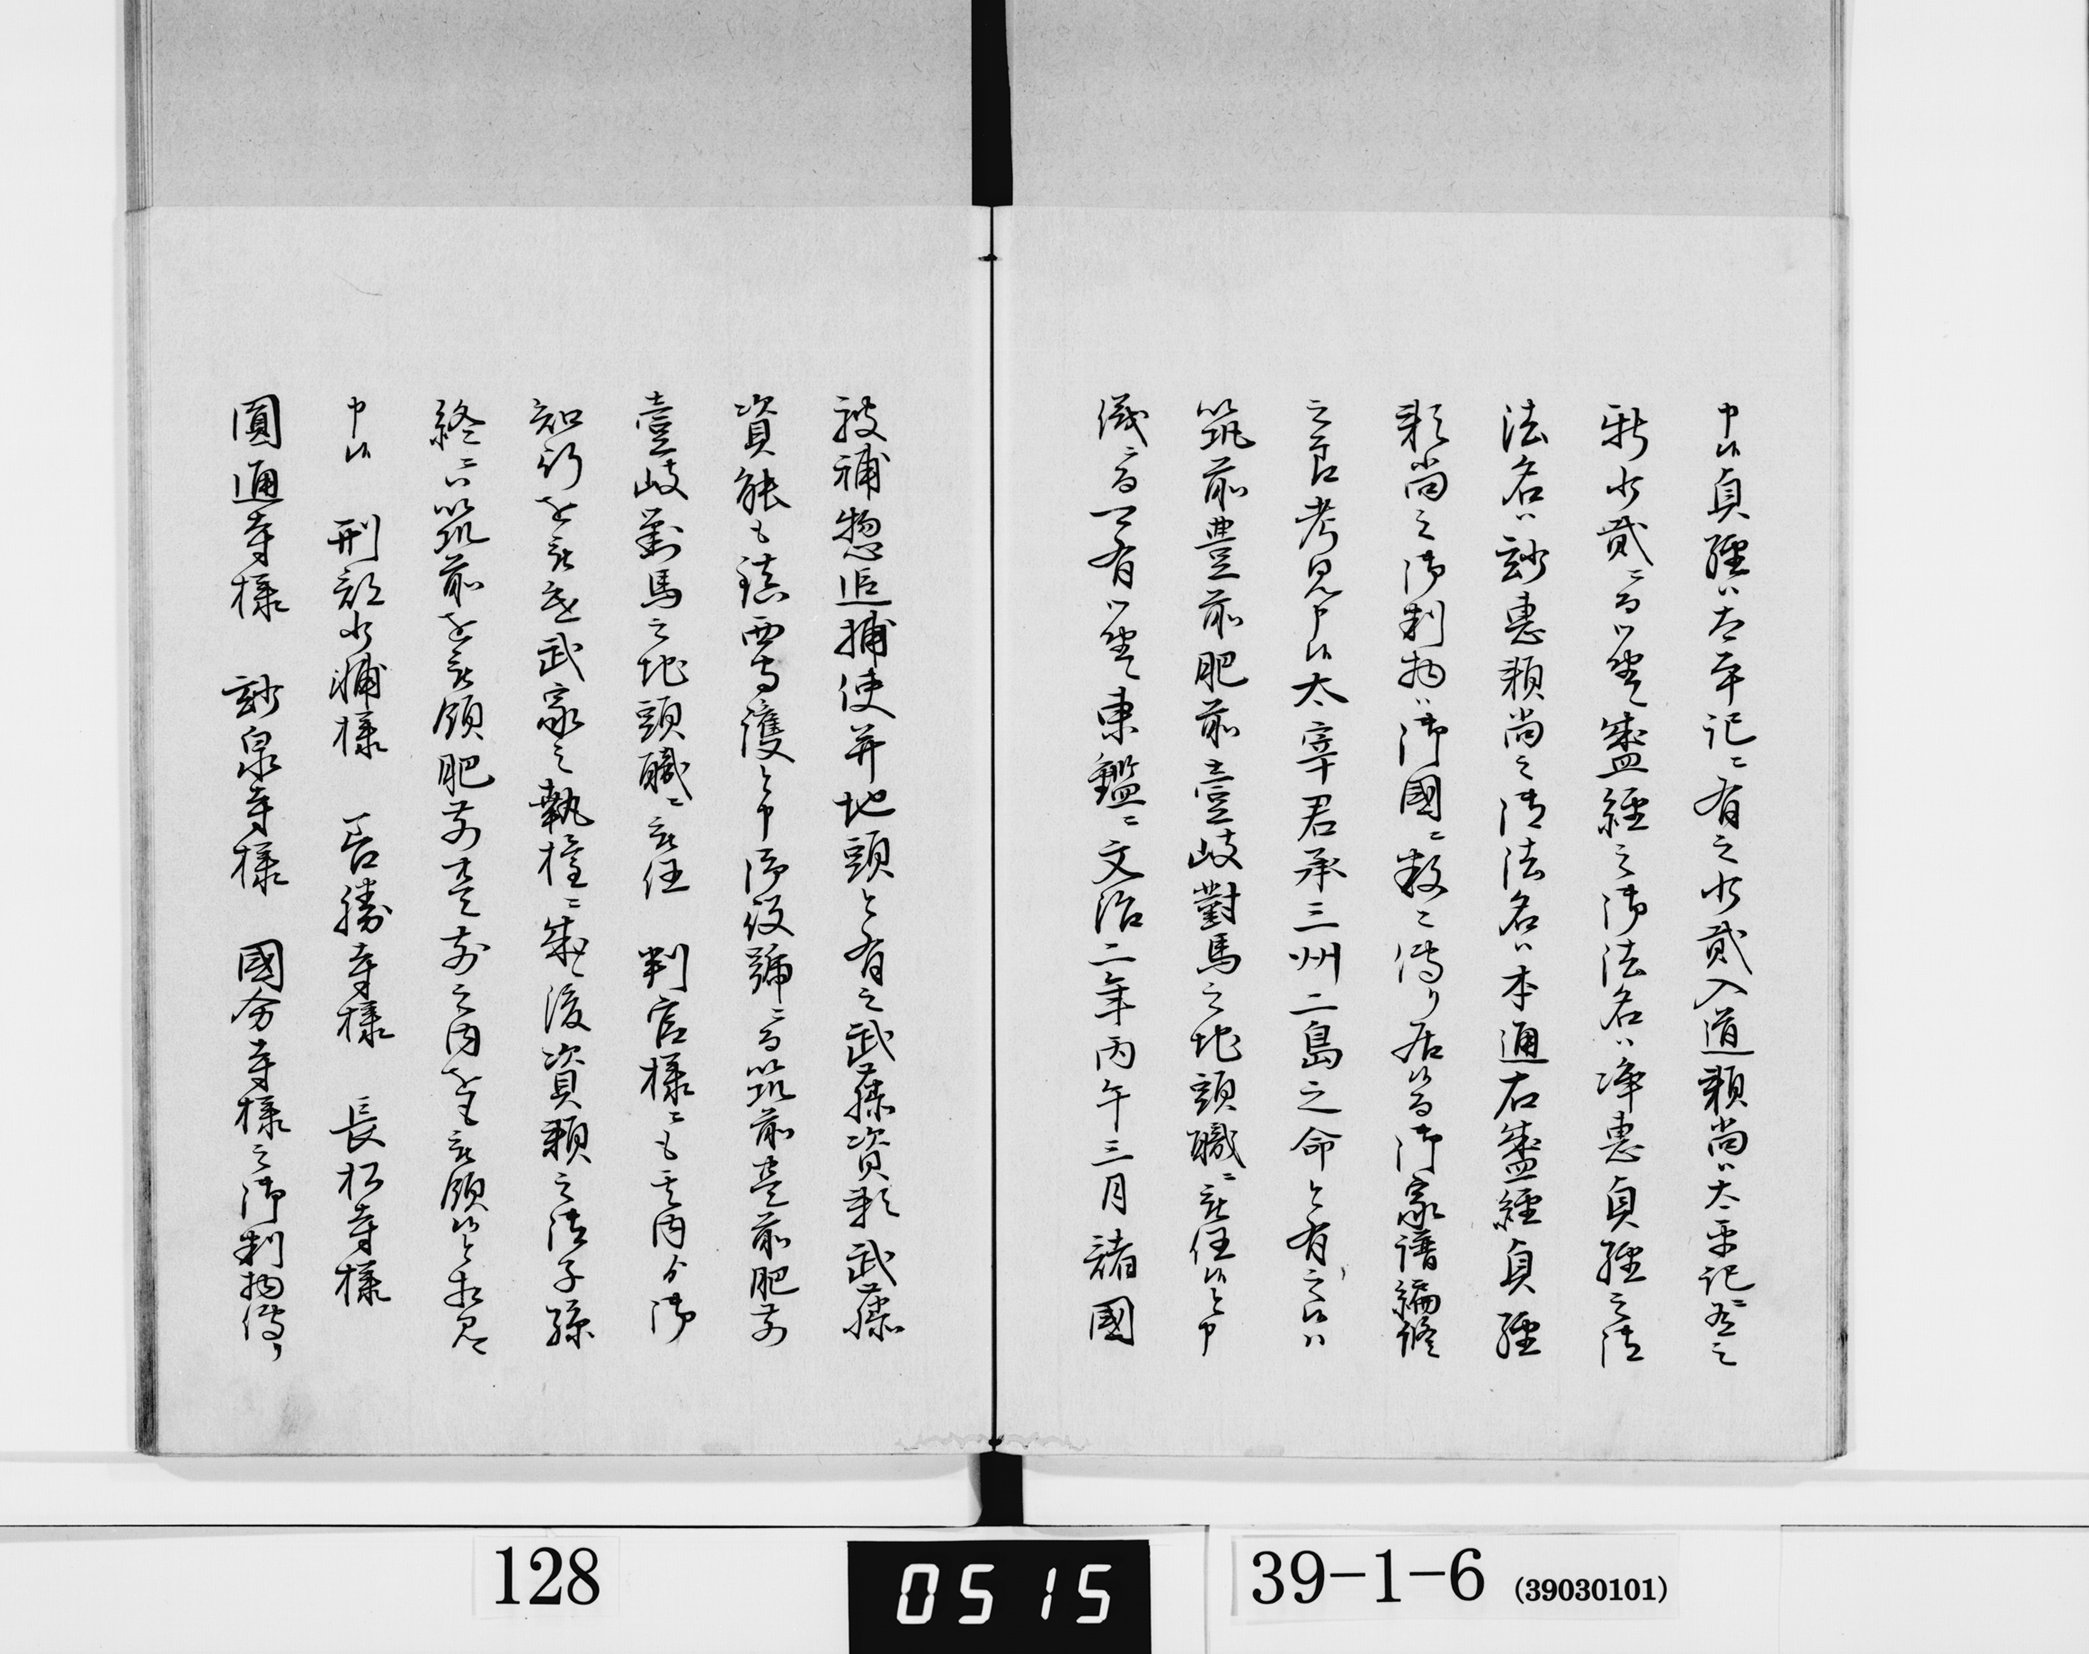 申候貞經ハ太平記ニ有之少貳入道頼尚ハ太平記ニ有之
新少貳ニ而御坐候盛經之御法名ハ浄惠貞經之御
法名ハ妙惠頼尚之御法名ハ本通右盛經貞經
頼尚之御判物ハ御國ニ数々傳り居候而御家譜編修
之節考見申候太宰君承三州二島之命と有之候ハ
筑前豊前肥前壹岐對馬之地頭職ニ被任候と申
儀ニ而可有御坐候東鑑ニ文治二年丙午三月諸國
被補惣追捕使并地頭と有之武藤資頼武藤
資能も鎮西守護と申御役號ニ而筑前豊前肥前
壹岐對馬之地頭職ニ被任 判官様ニも其内ゟ御
知行を被遊武家之執権ニ盛後資頼之御子孫
終ニハ筑前を被領肥前豊前之内をも被領候と相見
申候 刑部少輔様 長勝寺様 長松寺様
圓通寺様 妙泉寺様 國分寺様之御判物傳り
128
0515
39-1-6 (39030101)